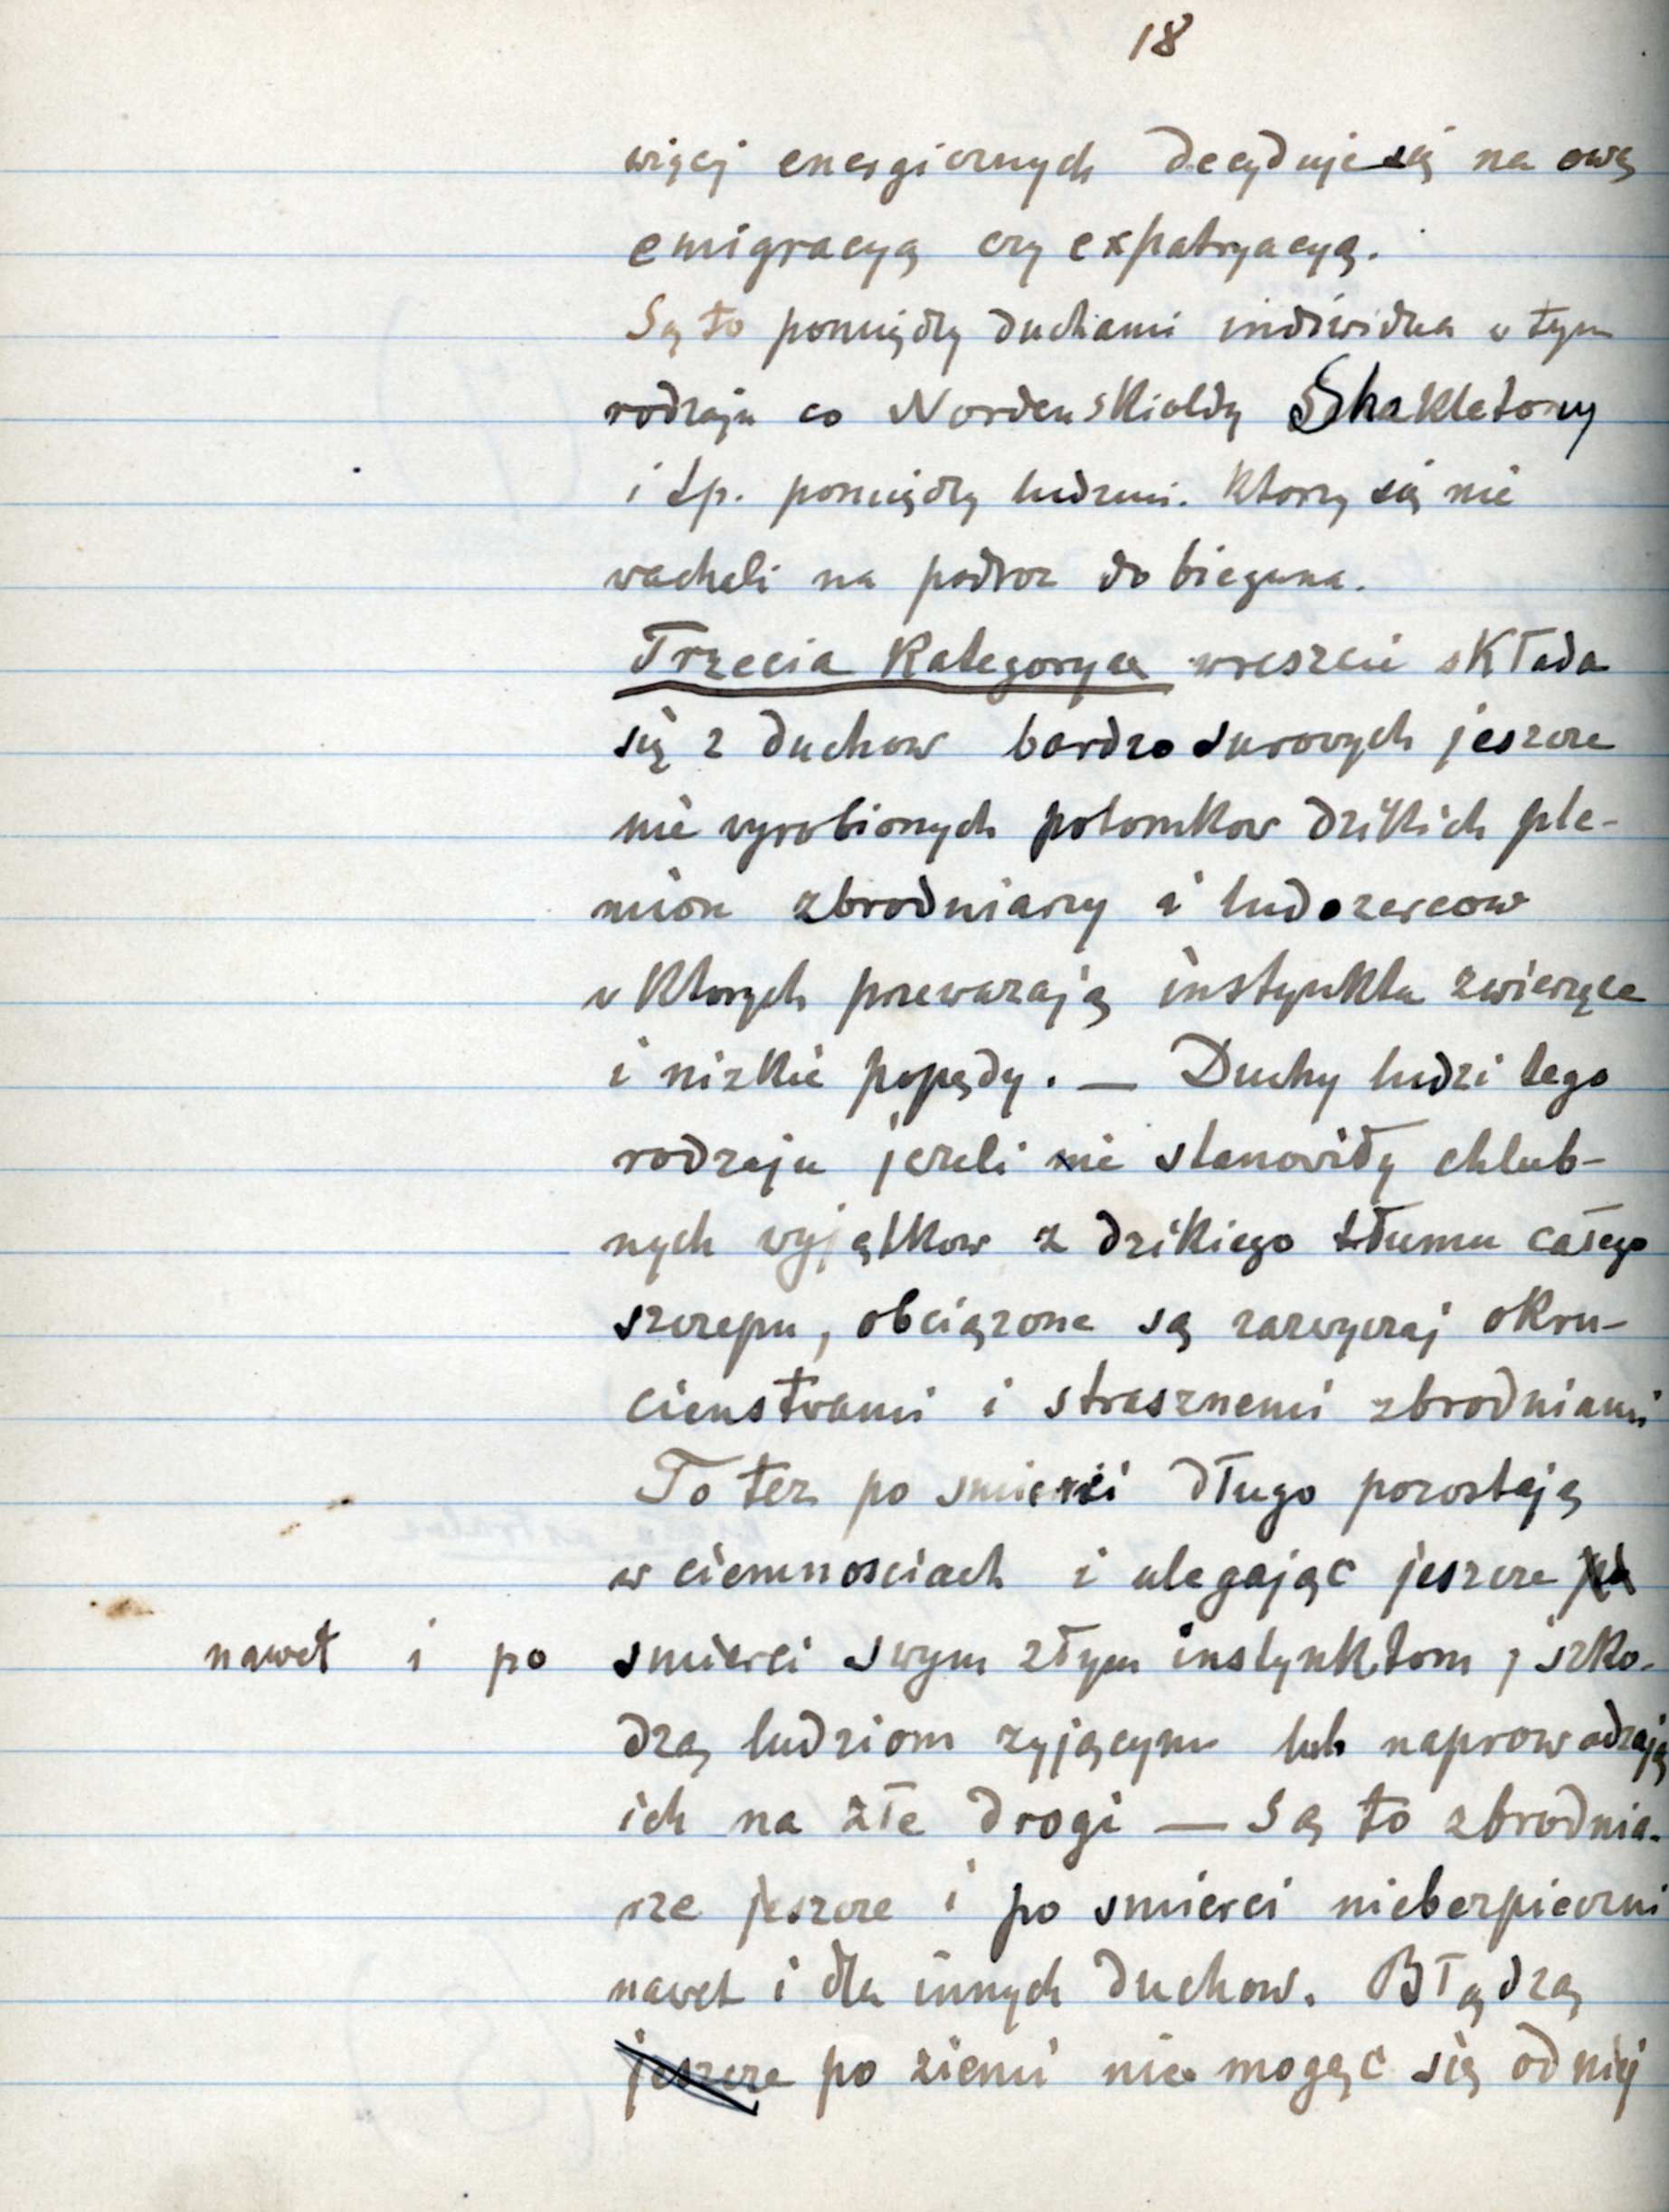 18
więcej energicznych decyduje się na ową
emigracyą czy expatryacyą.
Są to pomiędzy duchami indiwidua w tym
rodzaju co Nordenskioldy Shakletony
i tp. pomiędzy ludzmi. Ktorzy się nie
wachali na podroz do bieguna.
Trzecia Kategorya wreszcie sKłada
się z duchow bardzo surowych jeszcze
nie wyrobionych potomkow dzikich ple-
mion zbrodniarzy i ludozercow
w Ktorych przewazają instynkta zwierzęce
i nizkie popędy. — Duchy ludzi tego
rodzaju jezeli nie stanowiły chlub-
nych wyjątkow z dzikiego tłumu całego
szczepu, obciązone są zazwyczaj okru-
cienstwami i strasznemi zbrodniami
To tez po smierci długo pozostają
w ciemnosciach i ulegając jeszcze po
nawet i po smierci swym złym instynktom, szko-
dzą ludziom zyjącym lub naprowadzają
ich na złe drogi — Są to zbrodnia-
rze jeszcze i po smierci niebezpieczni
nawet i dla innych duchow. Błądzą
jeszcze po ziemi nie mogąc się od niej